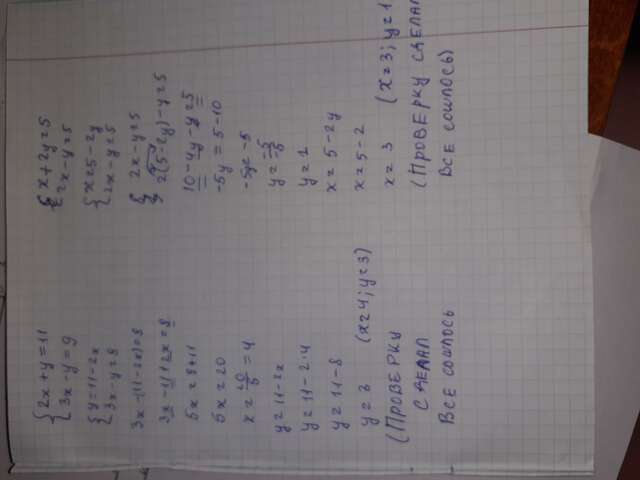 {2x+y=11
{3x-y=9
{y=11-2x
{3x-y=9
3x-(11-2x)=9
3x-11+2x=9
5x=9+11
5x=20
x=20/5=4
y=11-2x
y=11-2·4
y=11-8
y=3 (x=4; y=3)
(ПРОВЕРКУ
СДЕЛАЛ
ВСЕ СОШЛОСЬ
{x+2y=5
{2x-y=5
{x=5-2y
{2x-y=5
{2x-y=5
2(5-2y)-y=5
10-4y-y=5
-5y=5-10
-5y=-5
y=-5/-5
y=1
x=5-2y
x=5-2
x=3 (x=3; y=1
(ПРОВЕРКУ СДЕЛАЛ
ВСЕ СОШЛОСЬ)